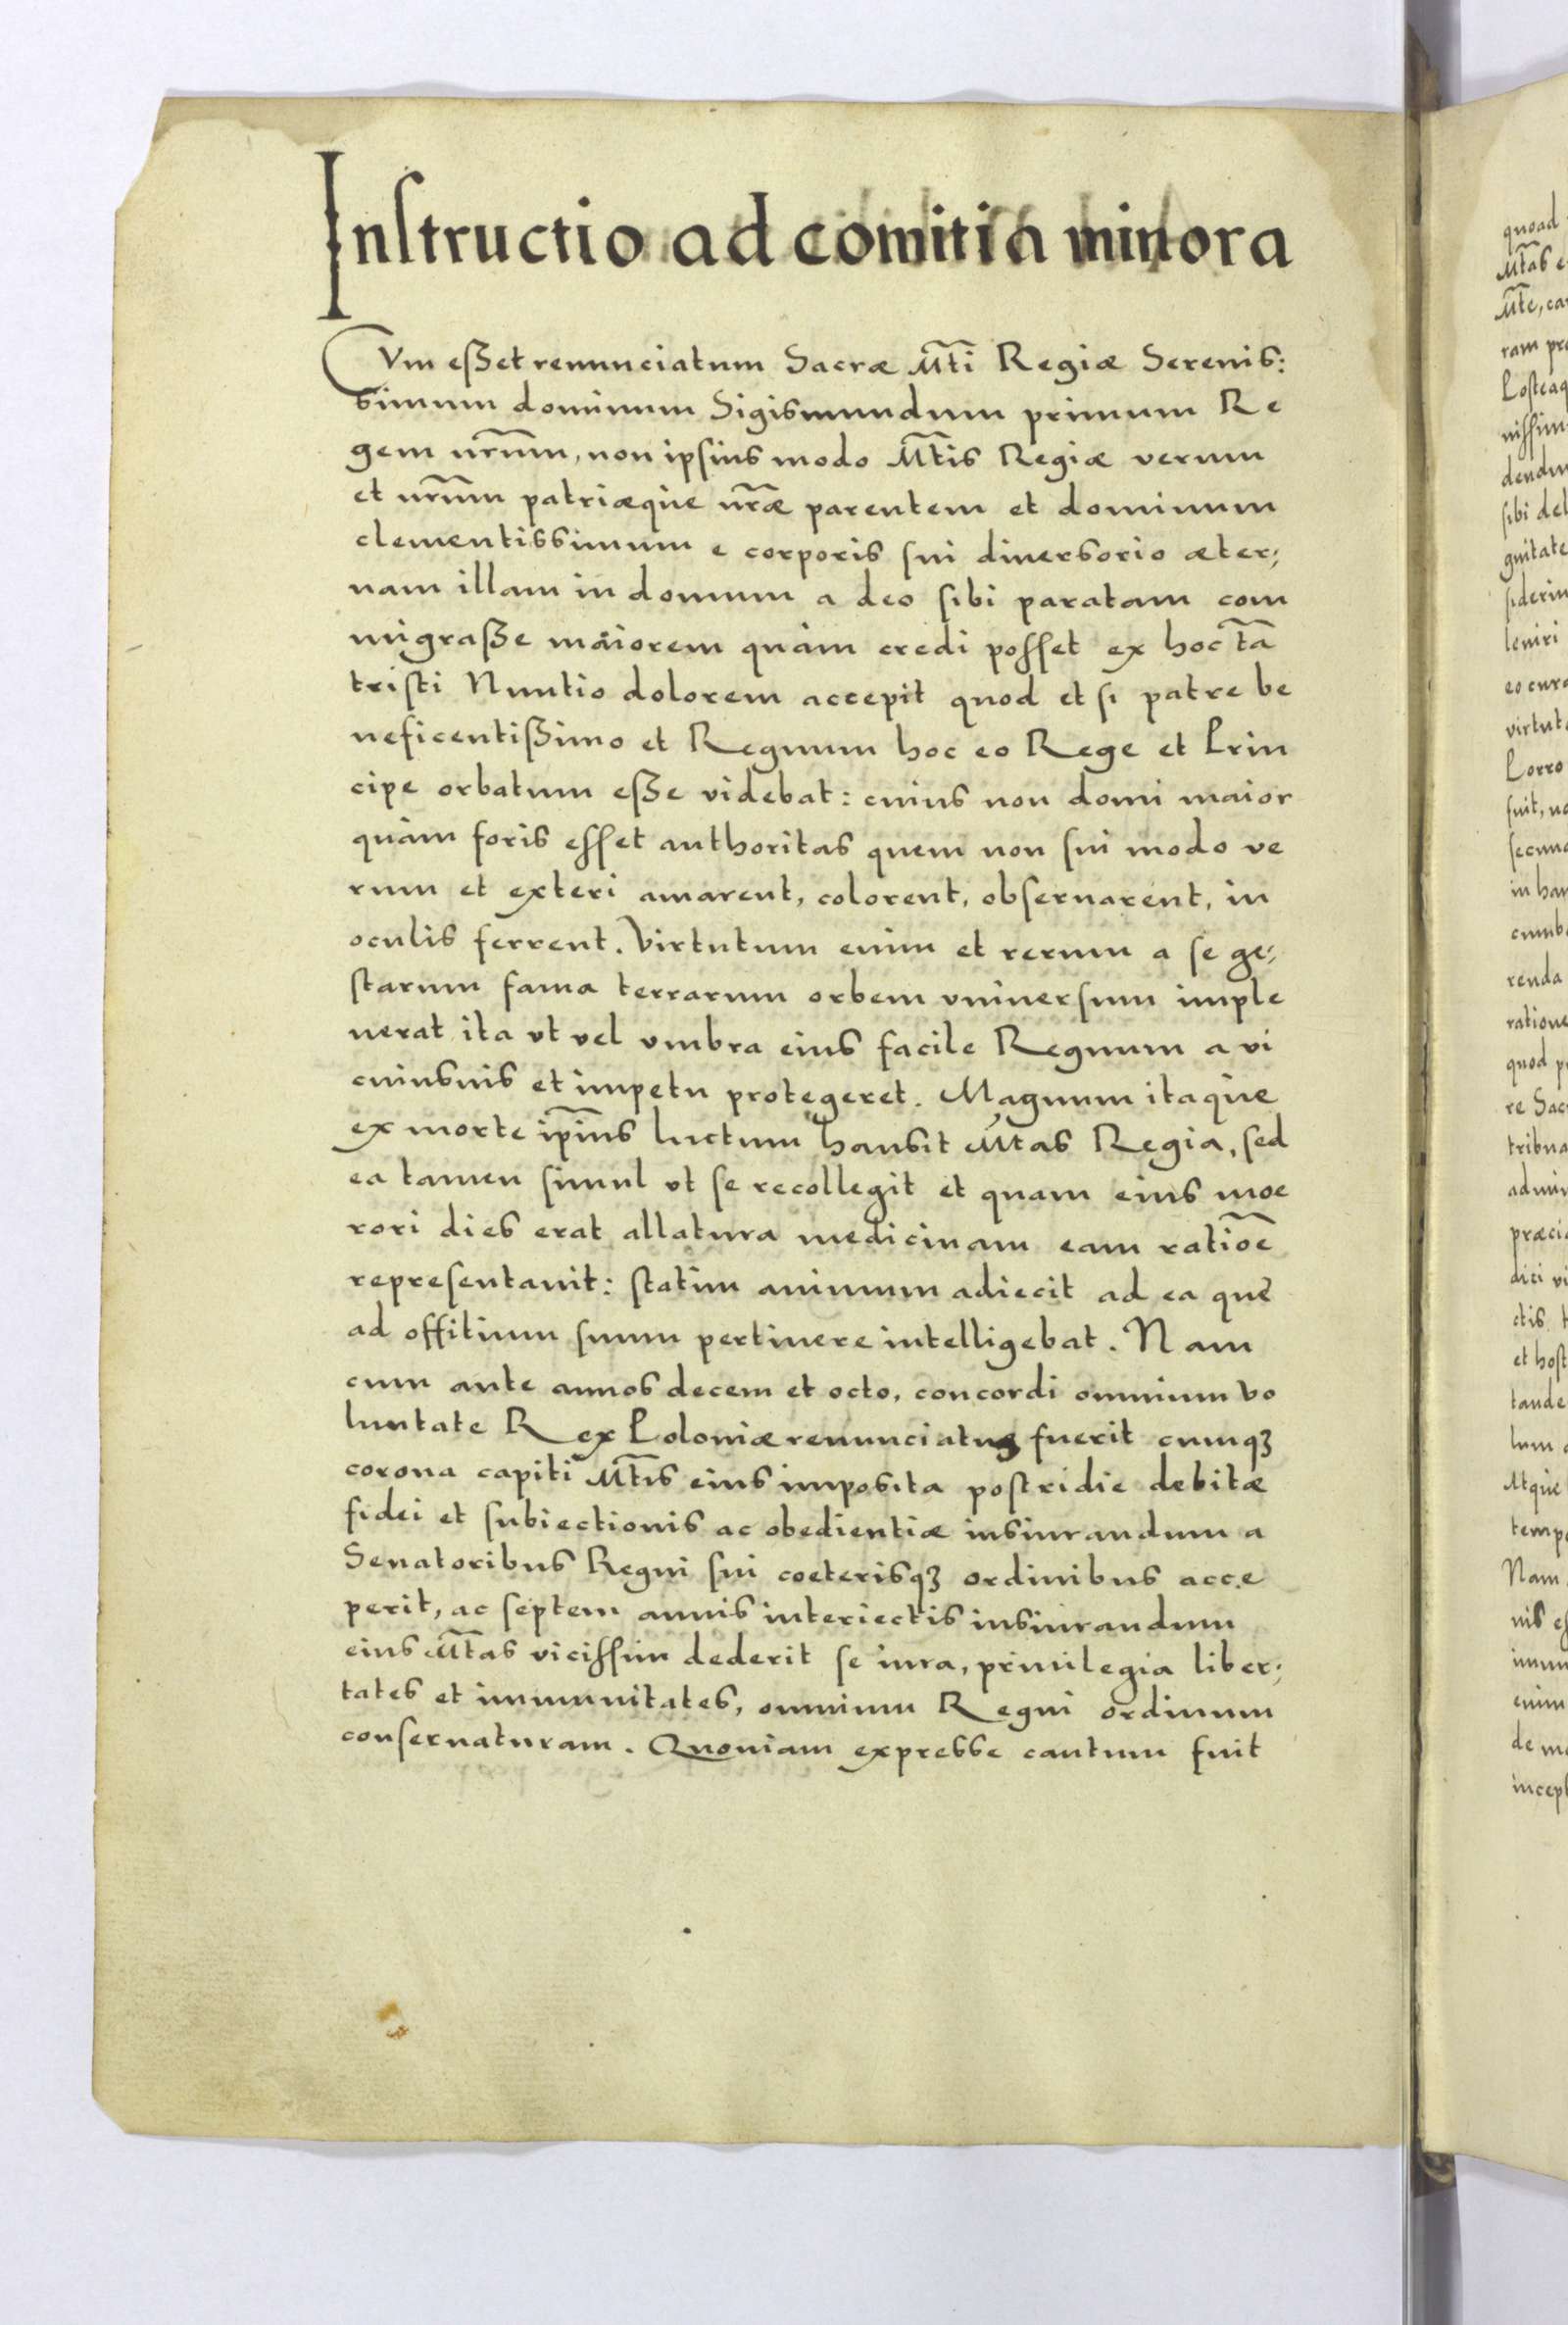 Inſtructio ad comitia minora
CVm eſzet renunciatum Sacræ Mt̃i Regiæ Serenis:
simum dominum Sigismundum primum Re
gem nr̃um, non ipſius modo Mt̃is Regiæ verum
et nr̃um patriæque nr̃æ parentem et dominum
clementissimum e corporis ſui diuersorio æter;
nam illam in domum a deo ſibi paratam com
migraſze maiorem quàm credi poſſet ex hoc tã
triſti Nuntio dolorem accepit quod et ſi patre be
neficentiſzimo et Regnum hoc eo Rege et Prin
cipe orbatum eſze videbat: cuius non domi maior
quàm foris eſſet authoritas quem non ſui modo ve
rum et exteri amarent, colorent, obſeruarent, in
oculis ferrent. Virtutum enim et rerum a ſe ge;
ſtarum fama terrarum orbem vniuerſum imple
uerat ita vt vel vmbra eius facile Regnum a vi
cuiusuis et impetu protegeret. Magnum itaque
ex morte ip̃ius luctum hausit Mt̃as Regia, ſed
ea tamen ſimul vt ſe recollegit et quam eius moe
rori dies erat allatura medicinam eam ratiõe
repreſentauit: ſtatim animum adiecit ad ea quę
ad offitium ſuum pertinere intelligebat. Nam
cum ante annos decem et octo, concordi omnium vo
luntate Rex Poloniæ renunciatus fuerit cumqꝫ
corona capiti Mt̃is eius imposita poſtridie debitæ
fidei et ſubiectionis ac obedientiæ iusiurandum a
Senatoribus Regni ſui coeterisqꝫ ordinibus acce
perit, ac ſeptem annis interiectis iusiurandum
eius Mt̃as viciſſim dederit ſe iura, priuilegia liber;
tates et immunitates, omnium Regni ordinum
conſeruaturam. Quoniam expresse cautum fuit
quoad
Mt̃as
Mt̃e,
ram
dendu
ſibi
leniri
eo
Porro
fuit,
in
renda
quod
re
dici
ctis
et
Atque
Nam
nis
enim
de